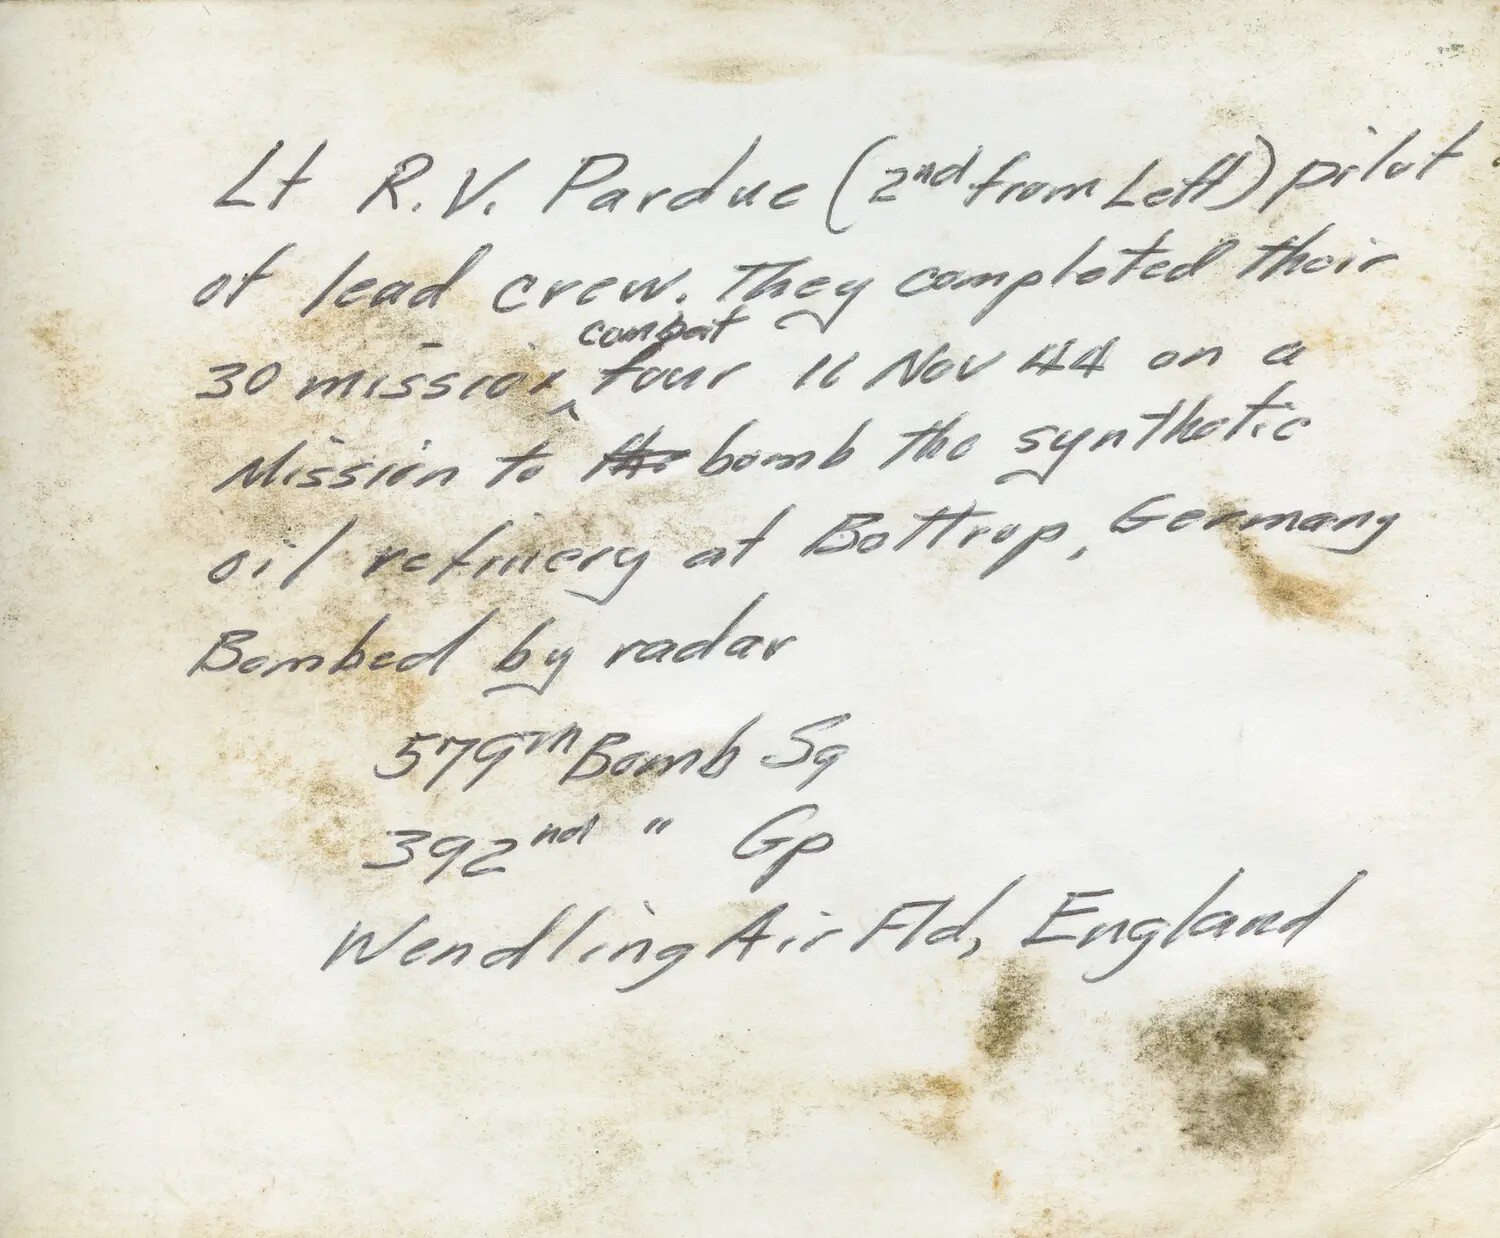 Lt R.V. Pardue (2nd from Left) pilot
of lead crew. They completed their
30 mission combat tour 11 Nov 44 on a
Mission to the bomb the synthetic
oil refinery at Bottrop, Germany
Bombed by radar
579th Bomb Sq
392nd " Gp
Wendling Air Fld, England